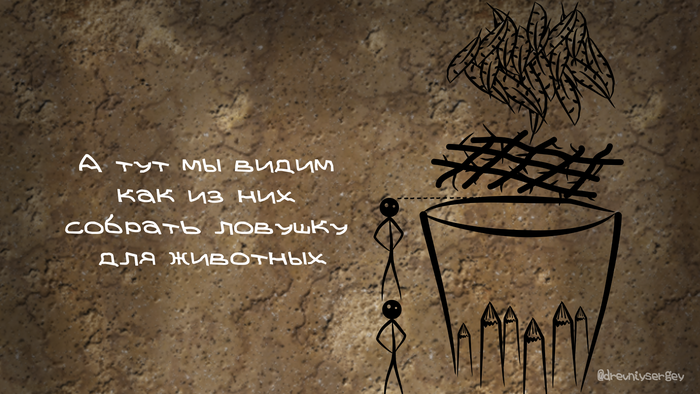 А тут мы видим
как из них
собрать ловушку
для животных
@drevniysergey